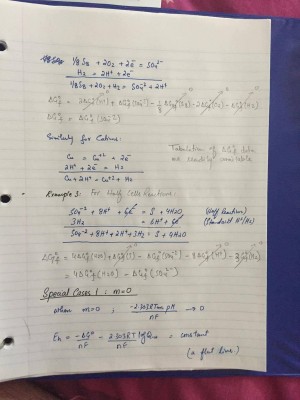 1/8 S8 + 2O2 + 2e⁻ = SO4²⁻
H2 = 2H⁺ + 2e⁻
1/8 S8 + 2O2 + H2 = SO4²⁻ + 2H⁺
ΔG°r = 2ΔG°f (H⁺) + ΔG°f (SO4²⁻) - 1/8 ΔG°f (S8) - 2ΔG°f (O2) - ΔG°f (H2)
ΔG°r = ΔG°f (SO4²⁻)
Similarly for Cations:
Cu = Cu⁺² + 2e⁻
2H⁺ + 2e⁻ = H2
Cu + 2H⁺ = Cu⁺² + H2
Tabulation of ΔG°f data
are readily available
Example 3: For Half Cells Reactions:
SO4⁻² + 8H⁺ + 6e⁻ = S + 4H2O (Half Reaction)
3H2 = 6H⁺ + 6e⁻ (Standard H⁺/H2)
SO4⁻² + 8H⁺ + 3H2 = S + 4H2O
ΔG°r = 4ΔG°f (H2O) + ΔG°f (S) - ΔG°f (SO4²⁻) - ΔG°f (H⁺) - 3ΔG°f (H2)
= 4ΔG°f (H2O) - ΔG°f (SO4²⁻)
Special Cases 1: m=0
when m=0; -2.303RTm pH / nF → 0
Eh = -ΔG° / nF - 2.303RT / nF log Q = constant
(a flat line)